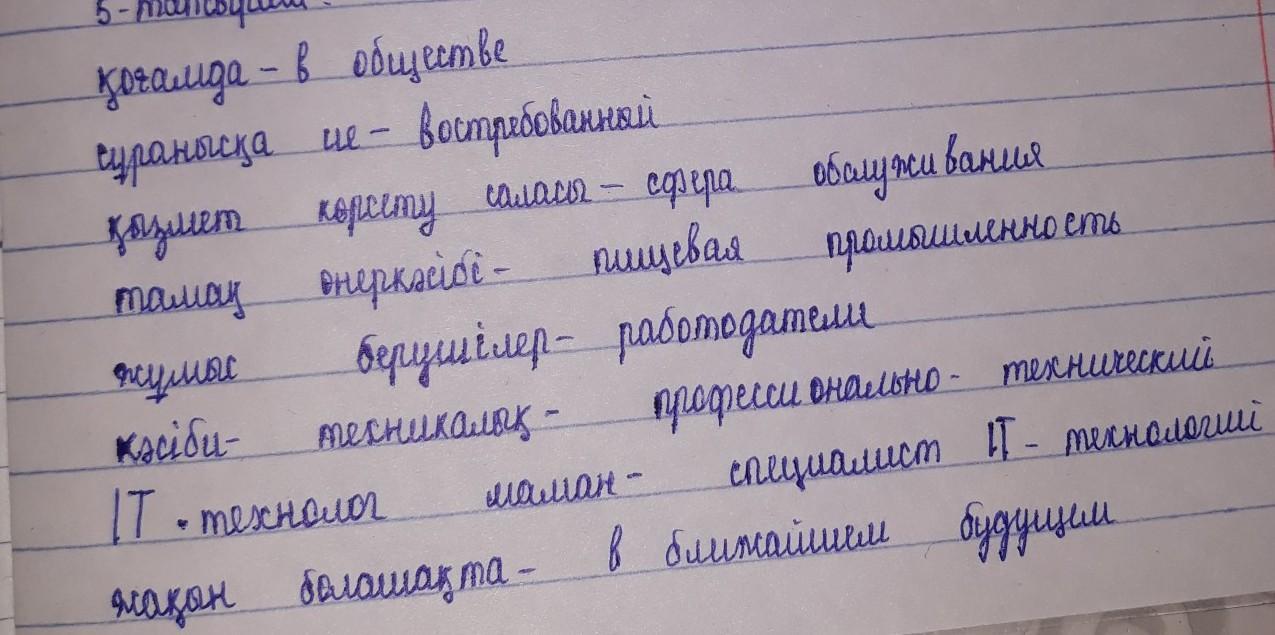 5-тапсырма.
қоғамда - в обществе
сұранысқа ие - востребованный
қызмет көрсету саласы - сфера обслуживания
тамақ өнеркәсібі - пищевая промышленность
жұмыс берушілер - работодатели
кәсіби- техникалық - профессионально- технический
IT-технолог маман - специалист IT-технологий
жақын болашақта - в ближайшем будущем